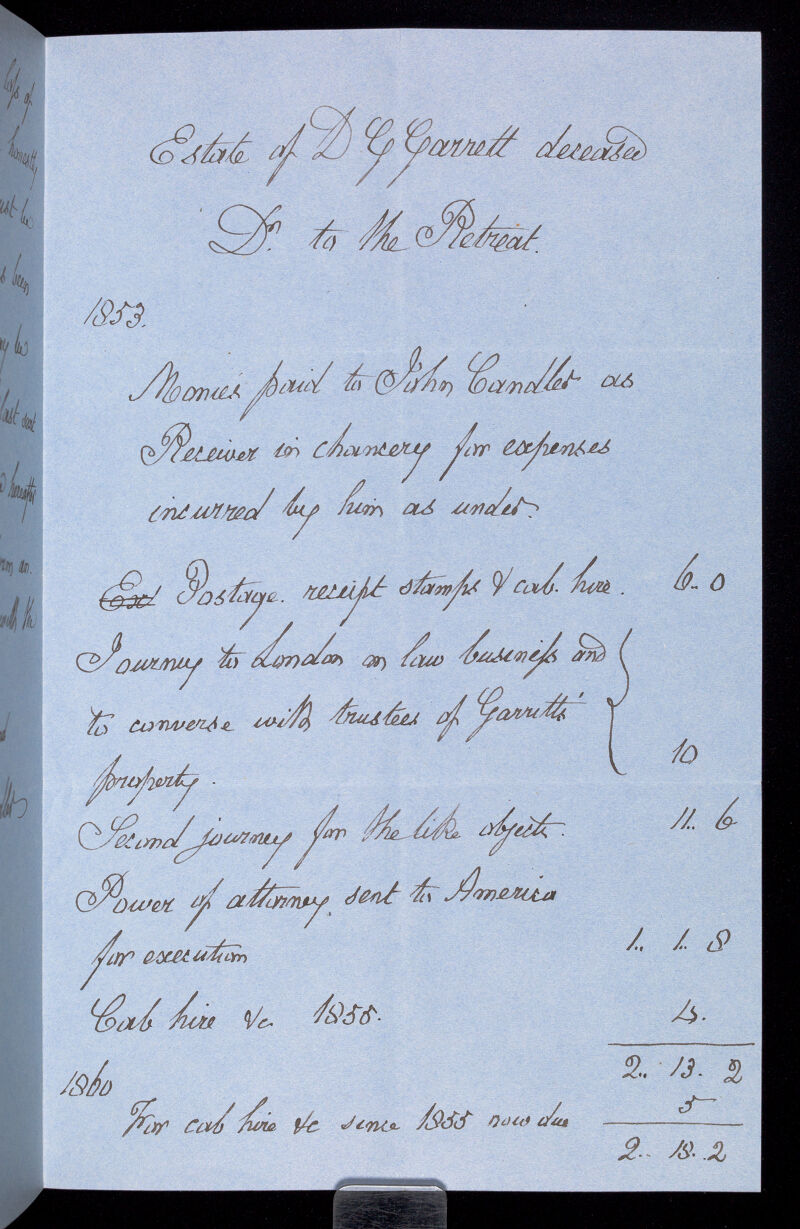 of
honestly
been
last sent
with the
Estate of D G Garrett deceased
Dr. to the Retreat.
1853.
Monies paid to John Candler as
Receiver in chancery for expenses
incurred by him as under.
Ex Postage. receipt stamps & cab. hire. 6.. 0
Journey to London on law business and
to converse with trustees of Garretts'
property. 10
Second journey for the like objects. 11.. 6
Power of attorney, sent to America
for execution 1.. 1.. 8
Cab hire &c 1855. 4.
2.. 13. 2
1860
For cab hire &c since 1855 now due 5
2.. 18.. 2